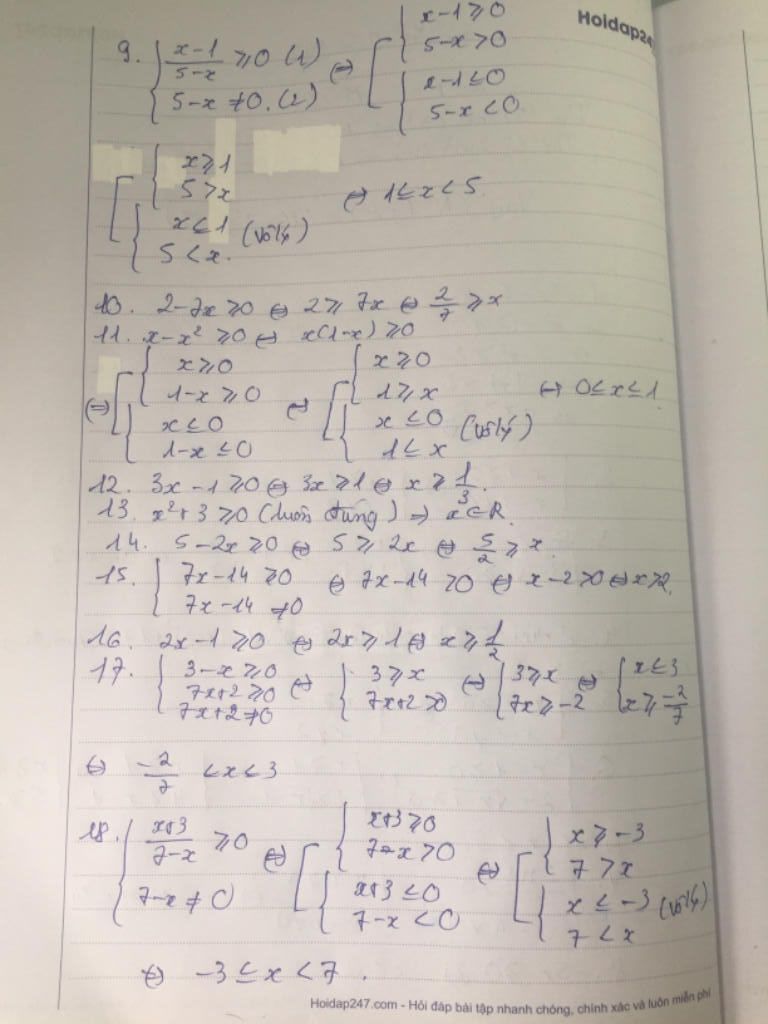 Hoidap247
9. { (x-1)/(5-x) ≥ 0 (1) ⇔ [ { x-1 ≥ 0
5-x ≠ 0. (2) 5-x > 0
{ x-1 ≤ 0
5-x < 0
[ { x ≥ 1
5 > x ⇔ 1 ≤ x < 5
{ x ≤ 1 (vô lý)
5 < x.
10. 2-7x ≥ 0 ⇔ 2 ≥ 7x ⇔ 2/7 ≥ x
11. x-x² ≥ 0 ⇔ x(1-x) ≥ 0
⇔ [ { x ≥ 0 ⇔ [ { x ≥ 0
1-x ≥ 0 1 ≥ x ⇔ 0 ≤ x ≤ 1
{ x ≤ 0 { x ≤ 0 (vô lý)
1-x ≤ 0 1 ≤ x
12. 3x-1 ≥ 0 ⇔ 3x ≥ 1 ⇔ x ≥ 1/3.
13. x²+3 ≥ 0 (luôn đúng) ⇒ x ∈ R.
14. 5-2x ≥ 0 ⇔ 5 ≥ 2x ⇔ 5/2 ≥ x
15. { 7x-14 ≥ 0 ⇔ 7x-14 > 0 ⇔ x-2 > 0 ⇔ x > 2
7x-14 ≠ 0
16. 2x-1 ≥ 0 ⇔ 2x ≥ 1 ⇔ x ≥ 1/2
17. { 3-x ≥ 0 ⇔ { 3 ≥ x ⇔ { 3 ≥ x ⇔ { x ≤ 3
7x+2 ≥ 0 7x+2 > 0 7x ≥ -2 x ≥ -2/7
7x+2 ≠ 0
⇔ -2/7 < x < 3
18. { (x+3)/(7-x) ≥ 0 ⇔ [ { x+3 ≥ 0 ⇔ [ { x ≥ -3
7-x > 0 7 > x
7-x ≠ 0 { x+3 ≤ 0 { x ≤ -3 (vô lý)
7-x < 0 7 < x
⇔ -3 ≤ x < 7.
Hoidap247.com - Hỏi đáp bài tập nhanh chóng, chính xác và luôn miễn phí